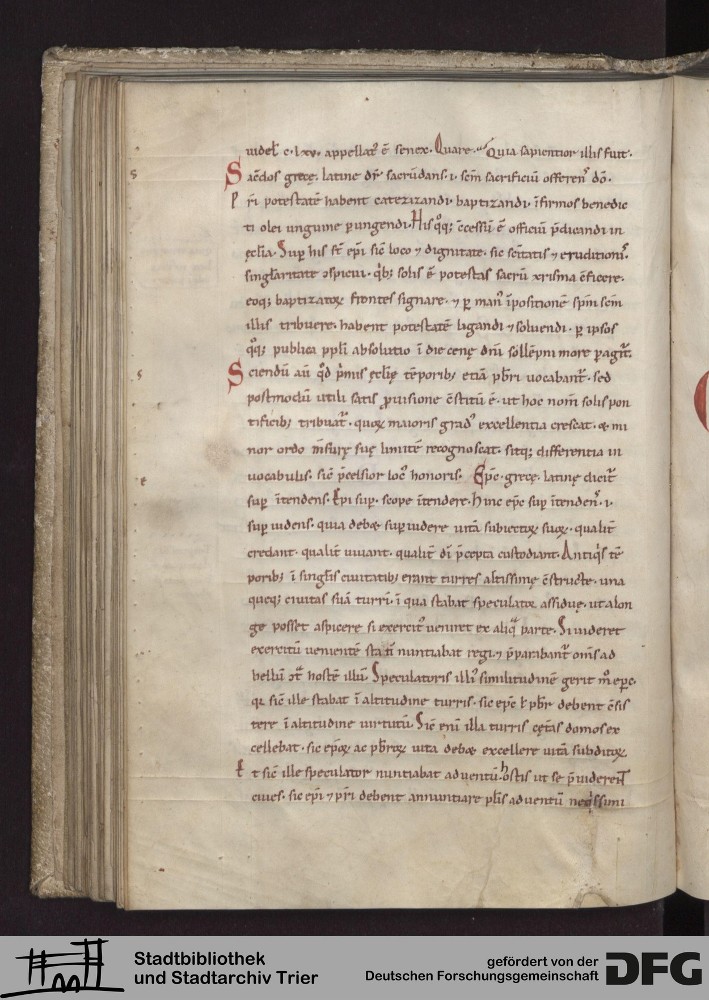 uidel& c.lxv. appellat᷒ ē senex. Quare. Quia sapientior illis fuit.
Sac̄dos grecę. latine dr̄ sacrūdans. i. sc̄m sacrificiū offeren᷒ dō.
p̄ri potestatē habent catezizandi. baptizandi. īfirmos benedic
ti olei unguine pungendi. His qͦq; c̄cessū ē officiū p̄dicandi in
ęcl̄ia. Sup his st̄ ep̄i sic̄ loco ⁊ dignitate. sic sc̄itatis ⁊ eruditioni᷒.
singl̄aritate ospicui. qͥb; solis ē potestas sacrū xrisma c̄ficere.
eoq; baptizatoꝝ frontes signare. ⁊ p man᷒ īpositionē sp̄m sc̄m
illis tribuere. habent potestatē ligandi ⁊ soluendi. p ipsos
qͦq; publica pp̄li absolutio ī die cenę dn̄i sollēpni more pagit᷑.
Sciendū aū qͦd p̄mis ęcl̄ię tēporib; etiā pb̄ri uocabant᷑. sed
postmodū utili satis ꝓuisione c̄stitū ē. ut hoc nom̄ solis pon
tificib; tribuat᷑. quoꝝ maioris grad᷒ excellentia crescat. & mi
nor ordo m̄surę suę limitē recognoscat. sitq; differentia in
uocabulis. sic̄ p̄celsior loc᷒ honoris. Ep̄c. grecę. latinę dicit᷑
sup ītendens. Epi sup. scope ītendere. Hinc ep̄c sup ītenden᷒. i.
sup uidens. quia deb& sup uidere uitā subiectoꝝ suoꝝ. qualit̄
credant. qualit̄ uiuant. qualit̄ dī p̄cepta custodiant. Antiqͥs tē
porib; ī singl̄is ciuitatib; erant turres altissimę c̄structe. una
queq; ciuitas suā turrī. ī qua stabat speculator assiduę. ut a lon
ge posset aspicere si exercit᷒ ueniret ex aliqͣ parte. Si uideret
exercitū uenientē statī nuntiabat regi. ⁊ p̄parabant᷑ om̄s ad
bellū ct̄ hostē illū. Speculatoris illi᷒ similitudinē gerit m̊ ep̄c.
qꝛ sic̄ ille stabat ī altitudine turris. sic ep̄c ł pb̄r debent c̄sis
tere ī altitudine uirtutū. Sic̄ enī illa turris cęt̄as domos ex
cellebat. sic ep̄oꝝ ac pb̄roꝝ uita deb& excellere uitā subditoꝝ.
Et sic̄ ille speculator nuntiabat aduentū hostis ut se p̄uiderent
ciues. sic ep̄i ⁊ p̄ri debent annuntiare pl̄is aduentū neqͥssimi
Stadtbibliothek
und Stadtarchiv Trier
gefördert von der
Deutschen Forschungsgemeinschaft
DFG